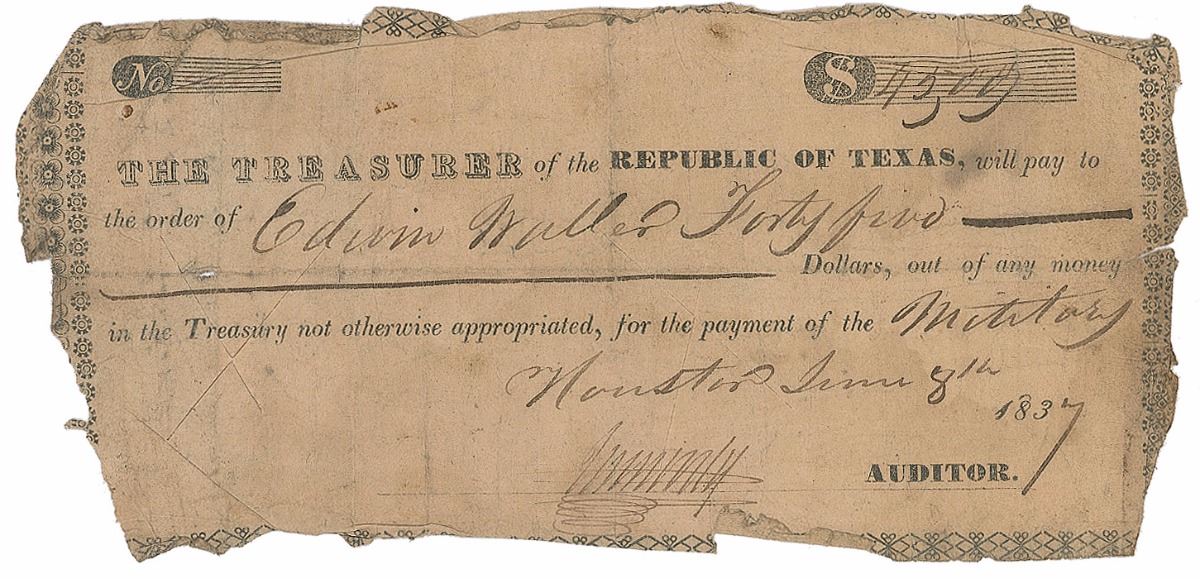 No
$ 45,00
THE TREASURER of the REPUBLIC OF TEXAS, will pay to
the order of Edwin Waller Forty five
Dollars, out of any money
in the Treasury not otherwise appropriated, for the payment of the Military
Houston June 8th
1837
AUDITOR.